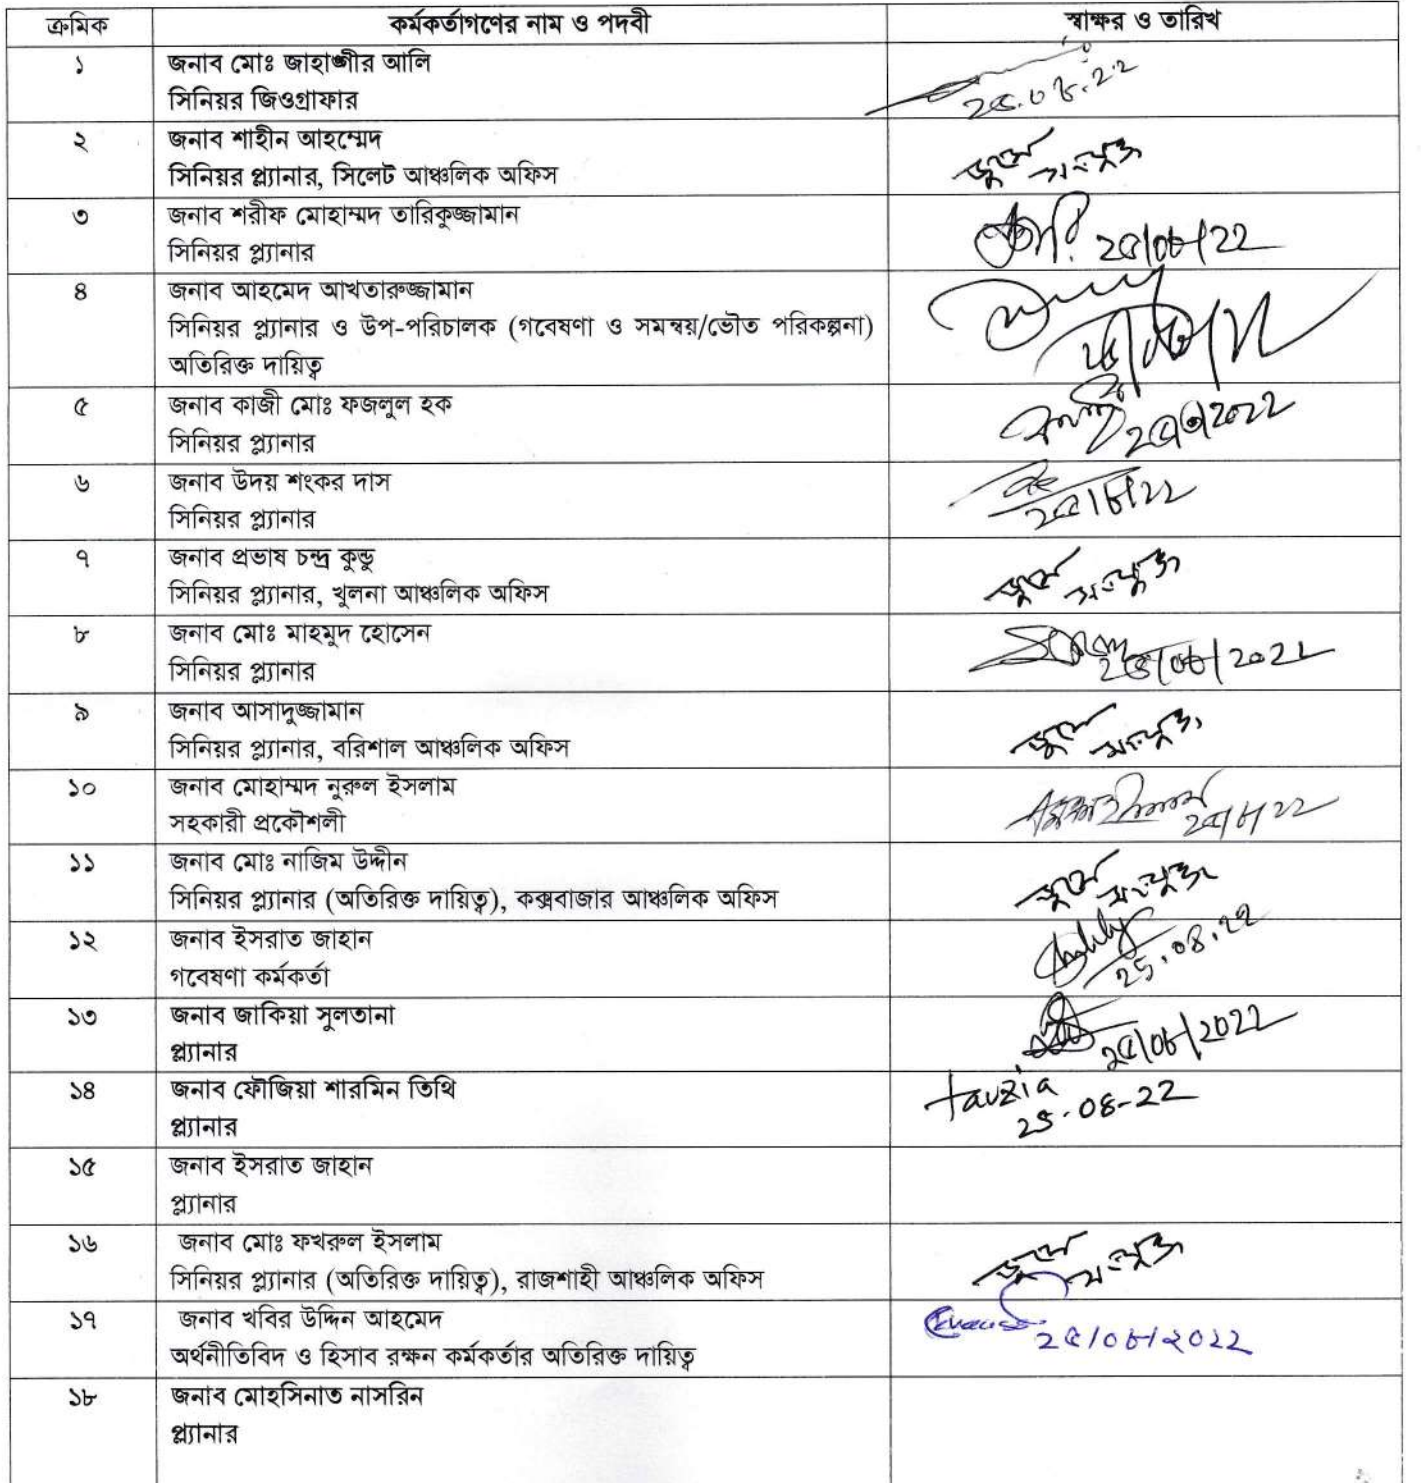 ক্রমিক কর্মকর্তাগণের নাম ও পদবী স্বাক্ষর ও তারিখ
১ জনাব মোঃ জাহাঙ্গীর আলি
সিনিয়র জিওগ্রাফার ২৫.০৮.২২
২ জনাব শাহীন আহম্মেদ
সিনিয়র প্ল্যানার, সিলেট আঞ্চলিক অফিস জুমে সংযুক্ত
৩ জনাব শরীফ মোহাম্মদ তারিকুজ্জামান
সিনিয়র প্ল্যানার ২৫/০৮/২২
৪ জনাব আহমেদ আখতারুজ্জামান
সিনিয়র প্ল্যানার ও উপ-পরিচালক (গবেষণা ও সমন্বয়/ভৌত পরিকল্পনা)
অতিরিক্ত দায়িত্ব
৫ জনাব কাজী মোঃ ফজলুল হক
সিনিয়র প্ল্যানার
৬ জনাব উদয় শংকর দাস
সিনিয়র প্ল্যানার ২৫/৮/২২
৭ জনাব প্রভাষ চন্দ্র কুন্ডু
সিনিয়র প্ল্যানার, খুলনা আঞ্চলিক অফিস জুমে সংযুক্ত
৮ জনাব মোঃ মাহমুদ হোসেন
সিনিয়র প্ল্যানার ২৫/০৮/২০২২
৯ জনাব আসাদুজ্জামান
সিনিয়র প্ল্যানার, বরিশাল আঞ্চলিক অফিস জুমে সংযুক্ত
১০ জনাব মোহাম্মদ নুরুল ইসলাম
সহকারী প্রকৌশলী ২৫/৮/২২
১১ জনাব মোঃ নাজিম উদ্দীন
সিনিয়র প্ল্যানার (অতিরিক্ত দায়িত্ব), কক্সবাজার আঞ্চলিক অফিস জুমে সংযুক্ত
১২ জনাব ইসরাত জাহান
গবেষণা কর্মকর্তা 25.08.22
১৩ জনাব জাকিয়া সুলতানা
প্ল্যানার ২৫/০৮/২০২২
১৪ জনাব ফৌজিয়া শারমিন তিথি fauzia
প্ল্যানার 25-08-22
১৫ জনাব ইসরাত জাহান
প্ল্যানার
১৬ জনাব মোঃ ফখরুল ইসলাম
সিনিয়র প্ল্যানার (অতিরিক্ত দায়িত্ব), রাজশাহী আঞ্চলিক অফিস জুমে সংযুক্ত
১৭ জনাব খবির উদ্দিন আহমেদ
অর্থনীতিবিদ ও হিসাব রক্ষন কর্মকর্তার অতিরিক্ত দায়িত্ব ২৫/০৮/২০২২
১৮ জনাব মোহসিনাত নাসরিন
প্ল্যানার